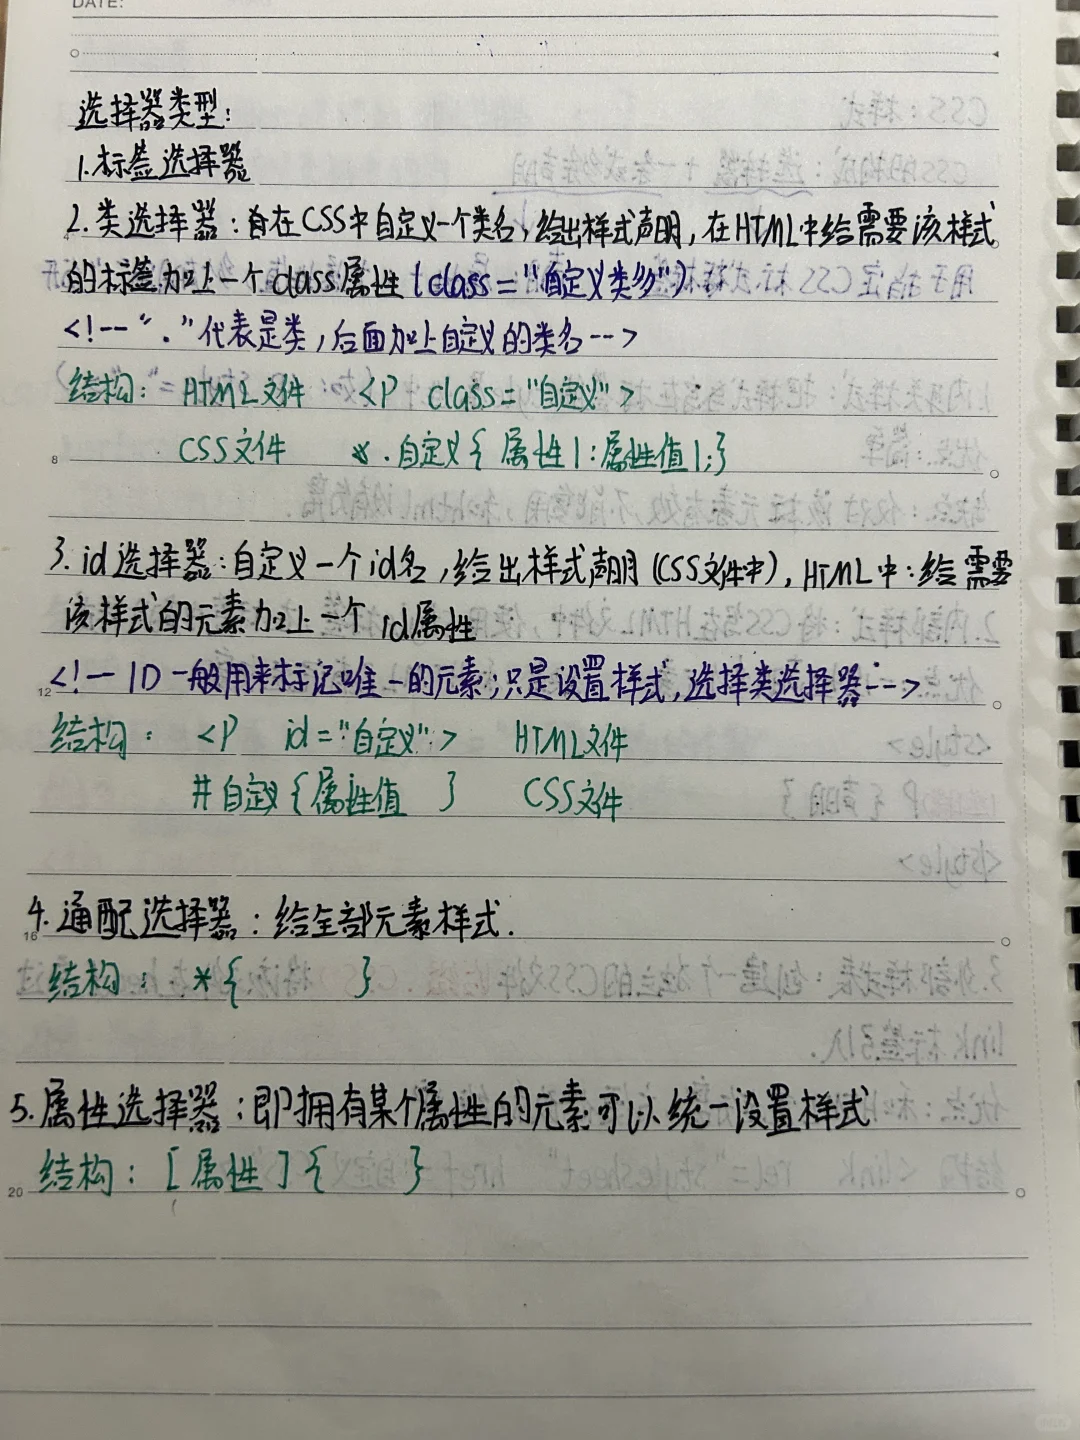 DATE:
选择器类型:
1.标签选择器
2.类选择器:在CSS中自定义一个类名,给出样式声明,在HTML中给需要该样式
的标签加上一个class属性(class="自定义类名")
<!--"."代表是类,后面加上自定义的类名-->
结构: HTML文件 <P class="自定义">
CSS文件 .自定义{属性1:属性值1;}
8
3.id选择器:自定义一个id名,给出样式声明(CSS文件中),HTML中:给需要
该样式的元素加上一个id属性
12 <!--ID一般用来标记唯一的元素;只是设置样式,选择类选择器-->
结构: <P id="自定义"> HTML文件
#自定义{属性值 } CSS文件
4.通配选择器:给全部元素样式.
16
结构: *{ }
5.属性选择器:即拥有某个属性的元素可以统一设置样式
结构:[属性]{ }
20